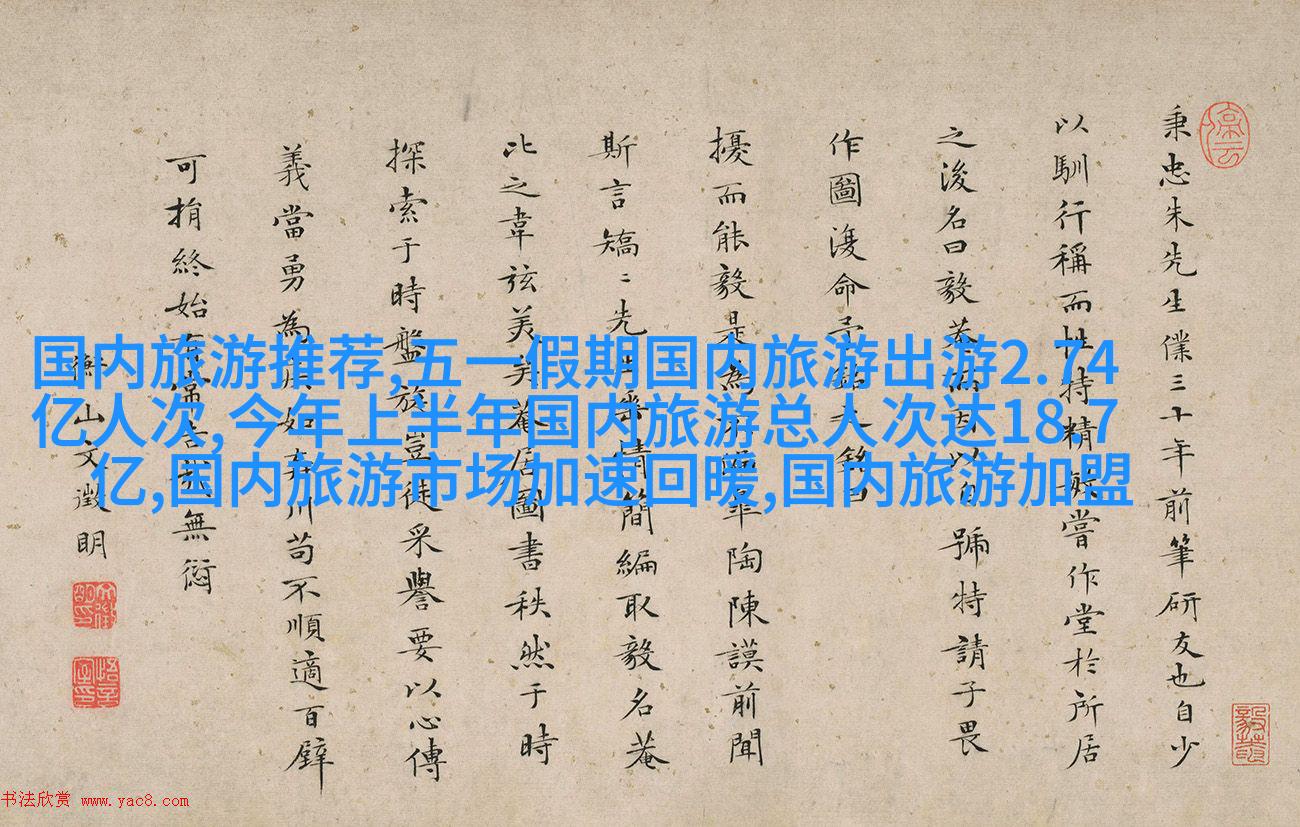 国内旅游推荐,五一假期国内旅游出游2.74
亿人次,今年上半年国内旅游总人次达18.7
亿,国内旅游市场加速回暖,国内旅游加盟
秉忠朱先生僕三十年前筆研友也自少
以馴行稱而性特精敏嘗作堂於所居
之後名曰毅菴而因以自號特請予畏
作圖復命予
擾而能毅是為皋陶陳謨前聞
斯言矯〻先生情簡編取毅名菴
比之韋弦美矣菴居圖書秩然于時
探索于時盤旋豈徒采譽要以心傳
義當勇為疾如奔川苟不順適百璧
可捐終始無愆
衡山文徵明
书法欣赏 www.yac8.com